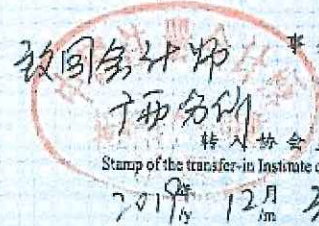 致同会计师 事
广西分所
转入协会
Stamp of the transfer-in Institute
2019年 12月
/y /m